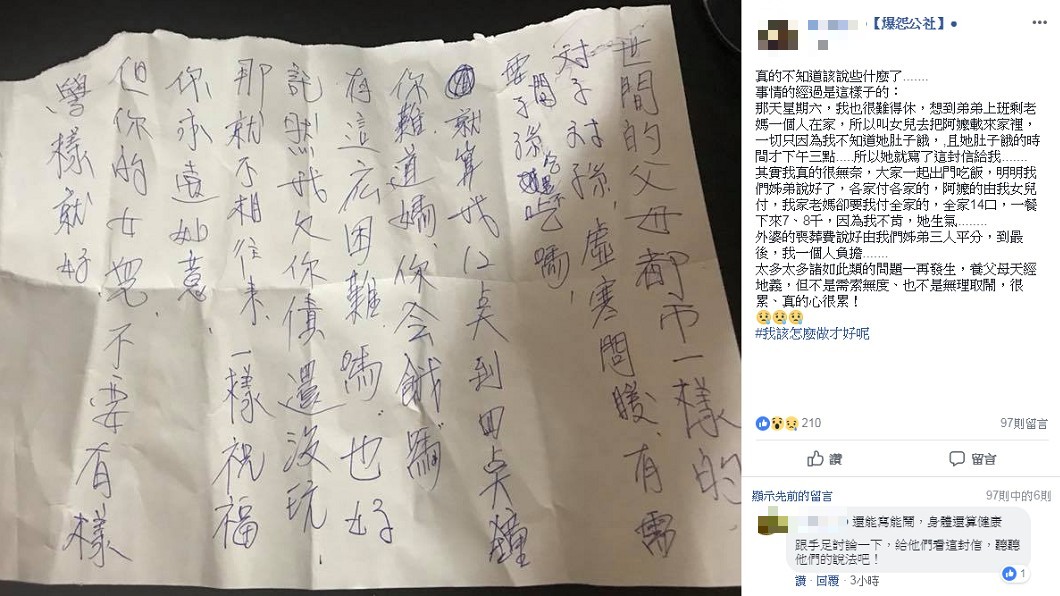 世間的父母都市一樣的
对子对孫,虛寒問暖,有需
子孫 嗎,
就算我12点到四点鐘
你難道 你会餓嗎
有這広困難嗎.也好
託然我欠你債還沒玩.
那就不相往来.一樣祝福
你永遠如意.
但你的女兒不要有樣
學樣就好.
【爆怨公社】
真的不知道該說些什麼了.......
事情的經過是這樣子的：
那天星期六，我也很難得休，想到弟弟上班剩老
媽一個人在家，所以叫女兒去把阿嬤載來家裡，
一切只因為我不知道她肚子餓，,且她肚子餓的時
間才下午三點.....所以她就寫了這封信給我.......
其實我真的很無奈，大家一起出門吃飯，明明我
們姊弟說好了，各家付各家的，阿嬤的由我女兒
付，我家老媽卻要我付全家的，全家14口，一餐
下來7、8千，因為我不肯，她生氣........
外婆的喪葬費說好由我們姊弟三人平分，到最
後，我一個人負擔.......
太多太多諸如此類的問題一再發生，養父母天經
地義，但不是需索無度、也不是無理取鬧，很
累、真的心很累！
😢😢😢
#我該怎麼做才好呢
210
97則留言
讚
留言
顯示先前的留言
97則中的6則
還能寫能鬧，身體還算健康
跟手足討論一下，給他們看這封信，聽聽
他們的說法吧！
1
讚 · 回覆 · 3小時